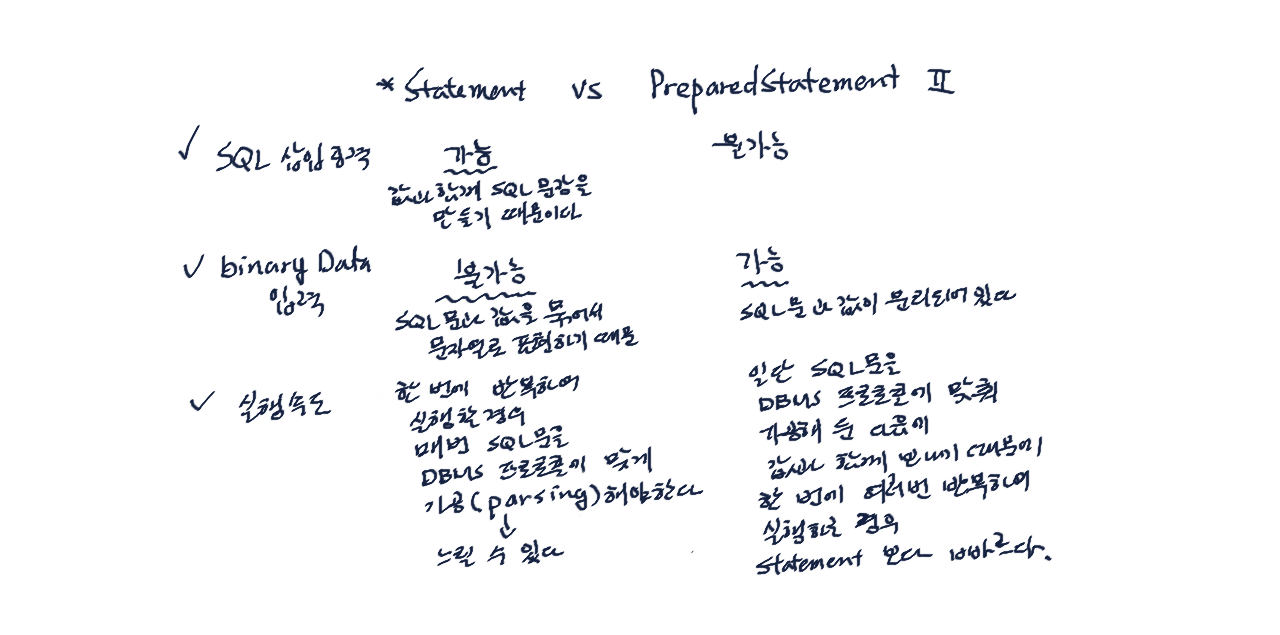 * Statement vs PreparedStatement II
✓ SQL 삽입공격 가능 불가능
값과 함께 SQL 문장을
만들기 때문이다
✓ binary Data
입력
불가능
SQL 문과 값을 묶어서
문자열로 표현하기 때문
가능
SQL문과 값이 분리되어 있다
✓ 실행속도
한 번에 반복하여
실행할 경우
매번 SQL문을
DBMS 프로토콜에 맞게
가공(parsing)해야한다
↓
느릴 수 있다
일단 SQL문을
DBMS 프로토콜에 맞춰
가공해 둔 다음에
값과 함께 보내기 때문에
한 번에 여러번 반복하여
실행하는 경우
Statement 보다 빠르다.